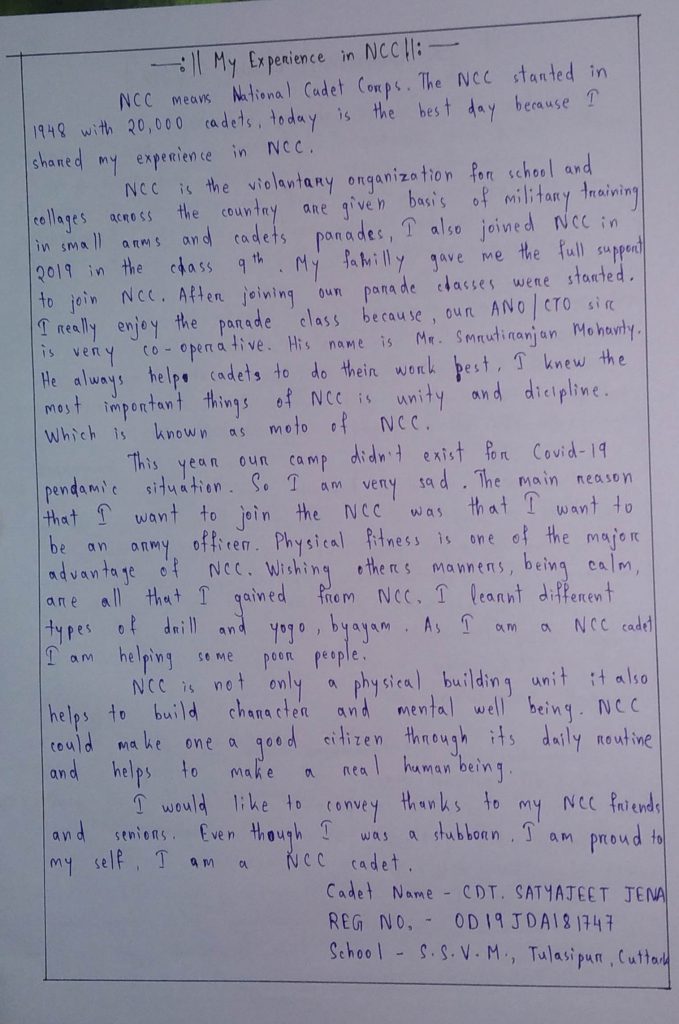 —:|| My Experience in NCC||:—
NCC means National Cadet Corps. The NCC started in
1948 with 20,000 cadets, today is the best day because I
shared my experience in NCC.
NCC is the violantary organization for school and
collages across the country are given basis of military training
in small arms and cadets parades, I also joined NCC in
2019 in the class 9th. My familly gave me the full support
to join NCC. After joining our parade classes were started.
I really enjoy the parade class because, our ANO/CTO sir
is very co-operative. His name is Mr. Smrutiranjan Mohanty.
He always helps cadets to do their work best. I knew the
most important things of NCC is unity and dicipline.
Which is known as moto of NCC.
This year our camp didn't exist for Covid-19
pendamic situation. So I am very sad. The main reason
that I want to join the NCC was that I want to
be an army officer. Physical fitness is one of the major
advantage of NCC. Wishing others manners, being calm,
are all that I gained from NCC. I learnt different
types of drill and yogo, byayam. As I am a NCC cadet
I am helping some poor people.
NCC is not only a physical building unit it also
helps to build character and mental well being. NCC
could make one a good citizen through its daily routine
and helps to make a real human being.
I would like to convey thanks to my NCC friends
and seniors. Even though I was a stubborn. I am proud to
my self, I am a NCC cadet.
Cadet Name - CDT. SATYAJEET JENA
REG NO. - OD19JDA181747
School - S.S.V.M., Tulasipur, Cuttack